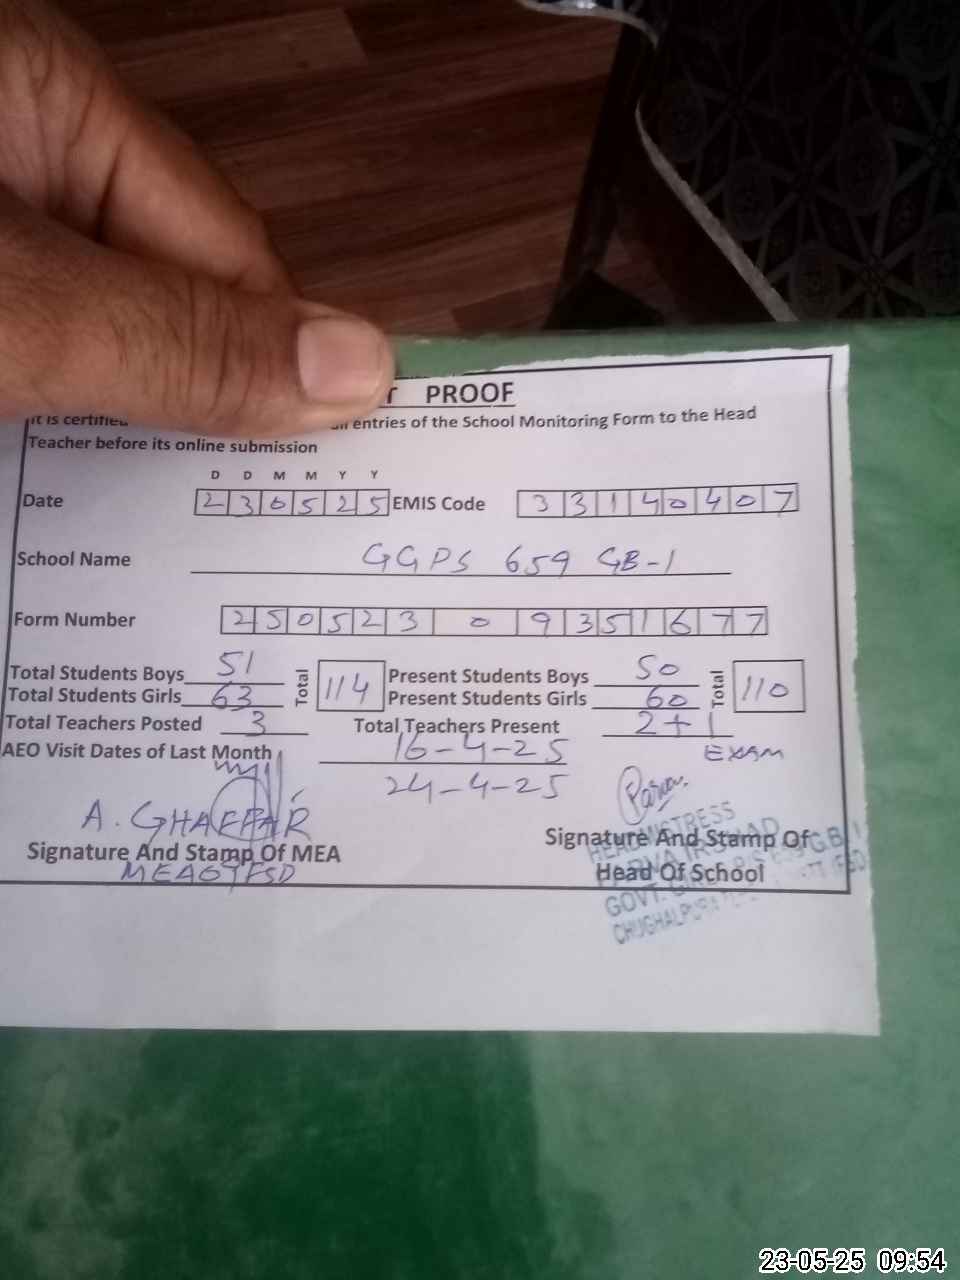 PROOF
It is certified entries of the School Monitoring Form to the Head
Teacher before its online submission
D D M M Y Y
Date 230525 EMIS Code 33140407
School Name GGPS 659 GB-1
Form Number 250523 0 9351677
Total Students Boys 51 Total 114 Present Students Boys 50 Total 110
Total Students Girls 63 Present Students Girls 60
Total Teachers Posted 3 Total Teachers Present 2+1
EXAM
AEO Visit Dates of Last Month 16-4-25
24-4-25
A. GHAFFAR
Signature And Stamp Of MEA
Signature And Stamp Of
Head Of School
HEADMISTRESS
GOVT.
23-05-25 09:54